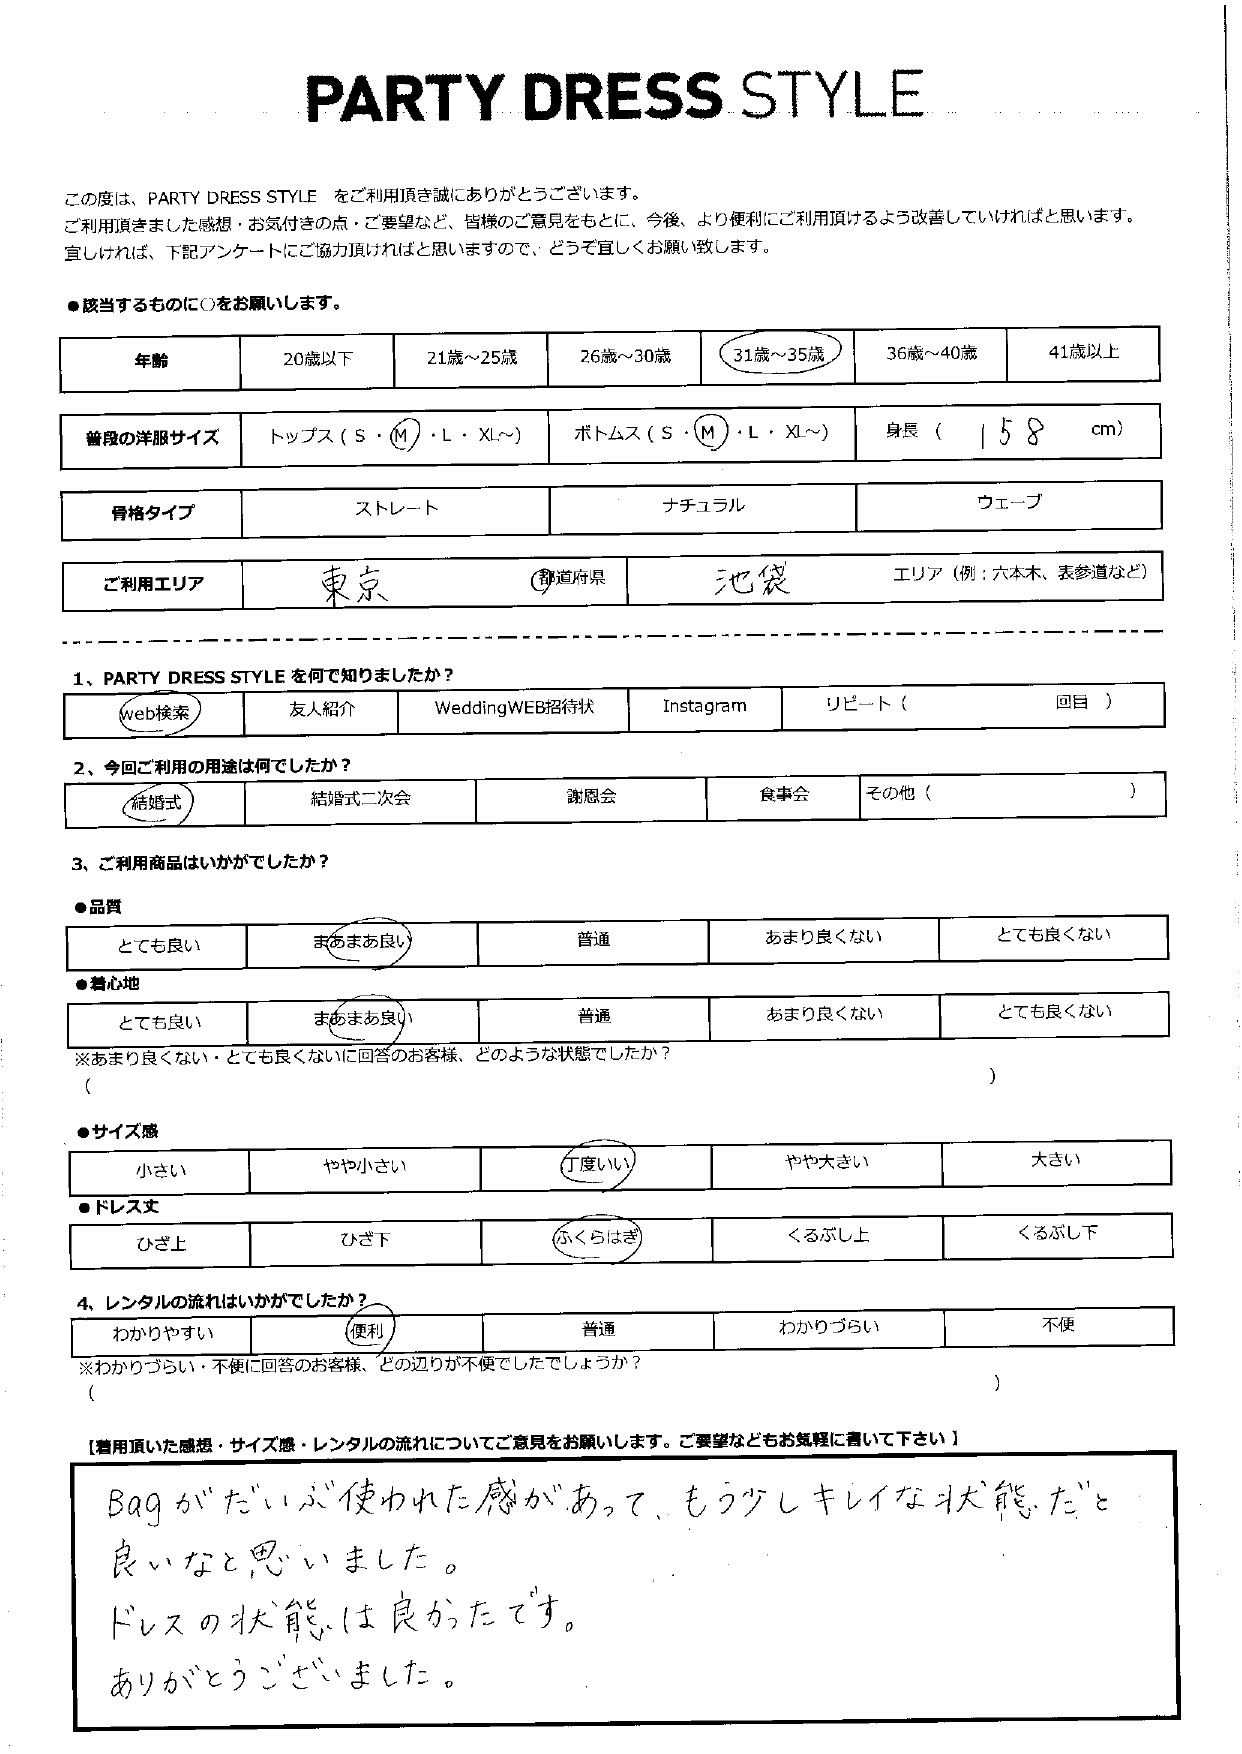 PARTY DRESS STYLE
この度は、PARTY DRESS STYLE をご利用頂き誠にありがとうございます。
ご利用頂きました感想・お気付きの点・ご要望など、皆様のご意見をもとに、今後、より便利にご利用頂けるよう改善していければと思います。
宜しければ、下記アンケートにご協力頂ければと思いますので、どうぞ宜しくお願い致します。
●該当するものに○をお願いします。
年齢 20歳以下 21歳～25歳 26歳～30歳 31歳～35歳 36歳～40歳 41歳以上
普段の洋服サイズ トップス（ S ・ M ・ L ・ XL～） ボトムス（ S ・ M ・ L ・ XL～） 身長（ 158 cm）
骨格タイプ ストレート ナチュラル ウェーブ
ご利用エリア 東京 都道府県 池袋 エリア（例：六本木、表参道など）
1、PARTY DRESS STYLE を何で知りましたか？
web検索 友人紹介 WeddingWEB招待状 Instagram リピート（ 回目 ）
2、今回ご利用の用途は何でしたか？
結婚式 結婚式二次会 謝恩会 食事会 その他（ ）
3、ご利用商品はいかがでしたか？
●品質
とても良い まあまあ良い 普通 あまり良くない とても良くない
●着心地
とても良い まあまあ良い 普通 あまり良くない とても良くない
※あまり良くない・とても良くないに回答のお客様、どのような状態でしたか？
（ ）
●サイズ感
小さい やや小さい 丁度いい やや大きい 大きい
●ドレス丈
ひざ上 ひざ下 ふくらはぎ くるぶし上 くるぶし下
4、レンタルの流れはいかがでしたか？
わかりやすい 便利 普通 わかりづらい 不便
※わかりづらい・不便に回答のお客様、どの辺りが不便でしたでしょうか？
（ ）
【着用頂いた感想・サイズ感・レンタルの流れについてご意見をお願いします。ご要望などもお気軽に書いて下さい 】
Bagがだいぶ使われた感があって、もう少しキレイな状態だと
良いなと思いました。
ドレスの状態は良かったです。
ありがとうございました。